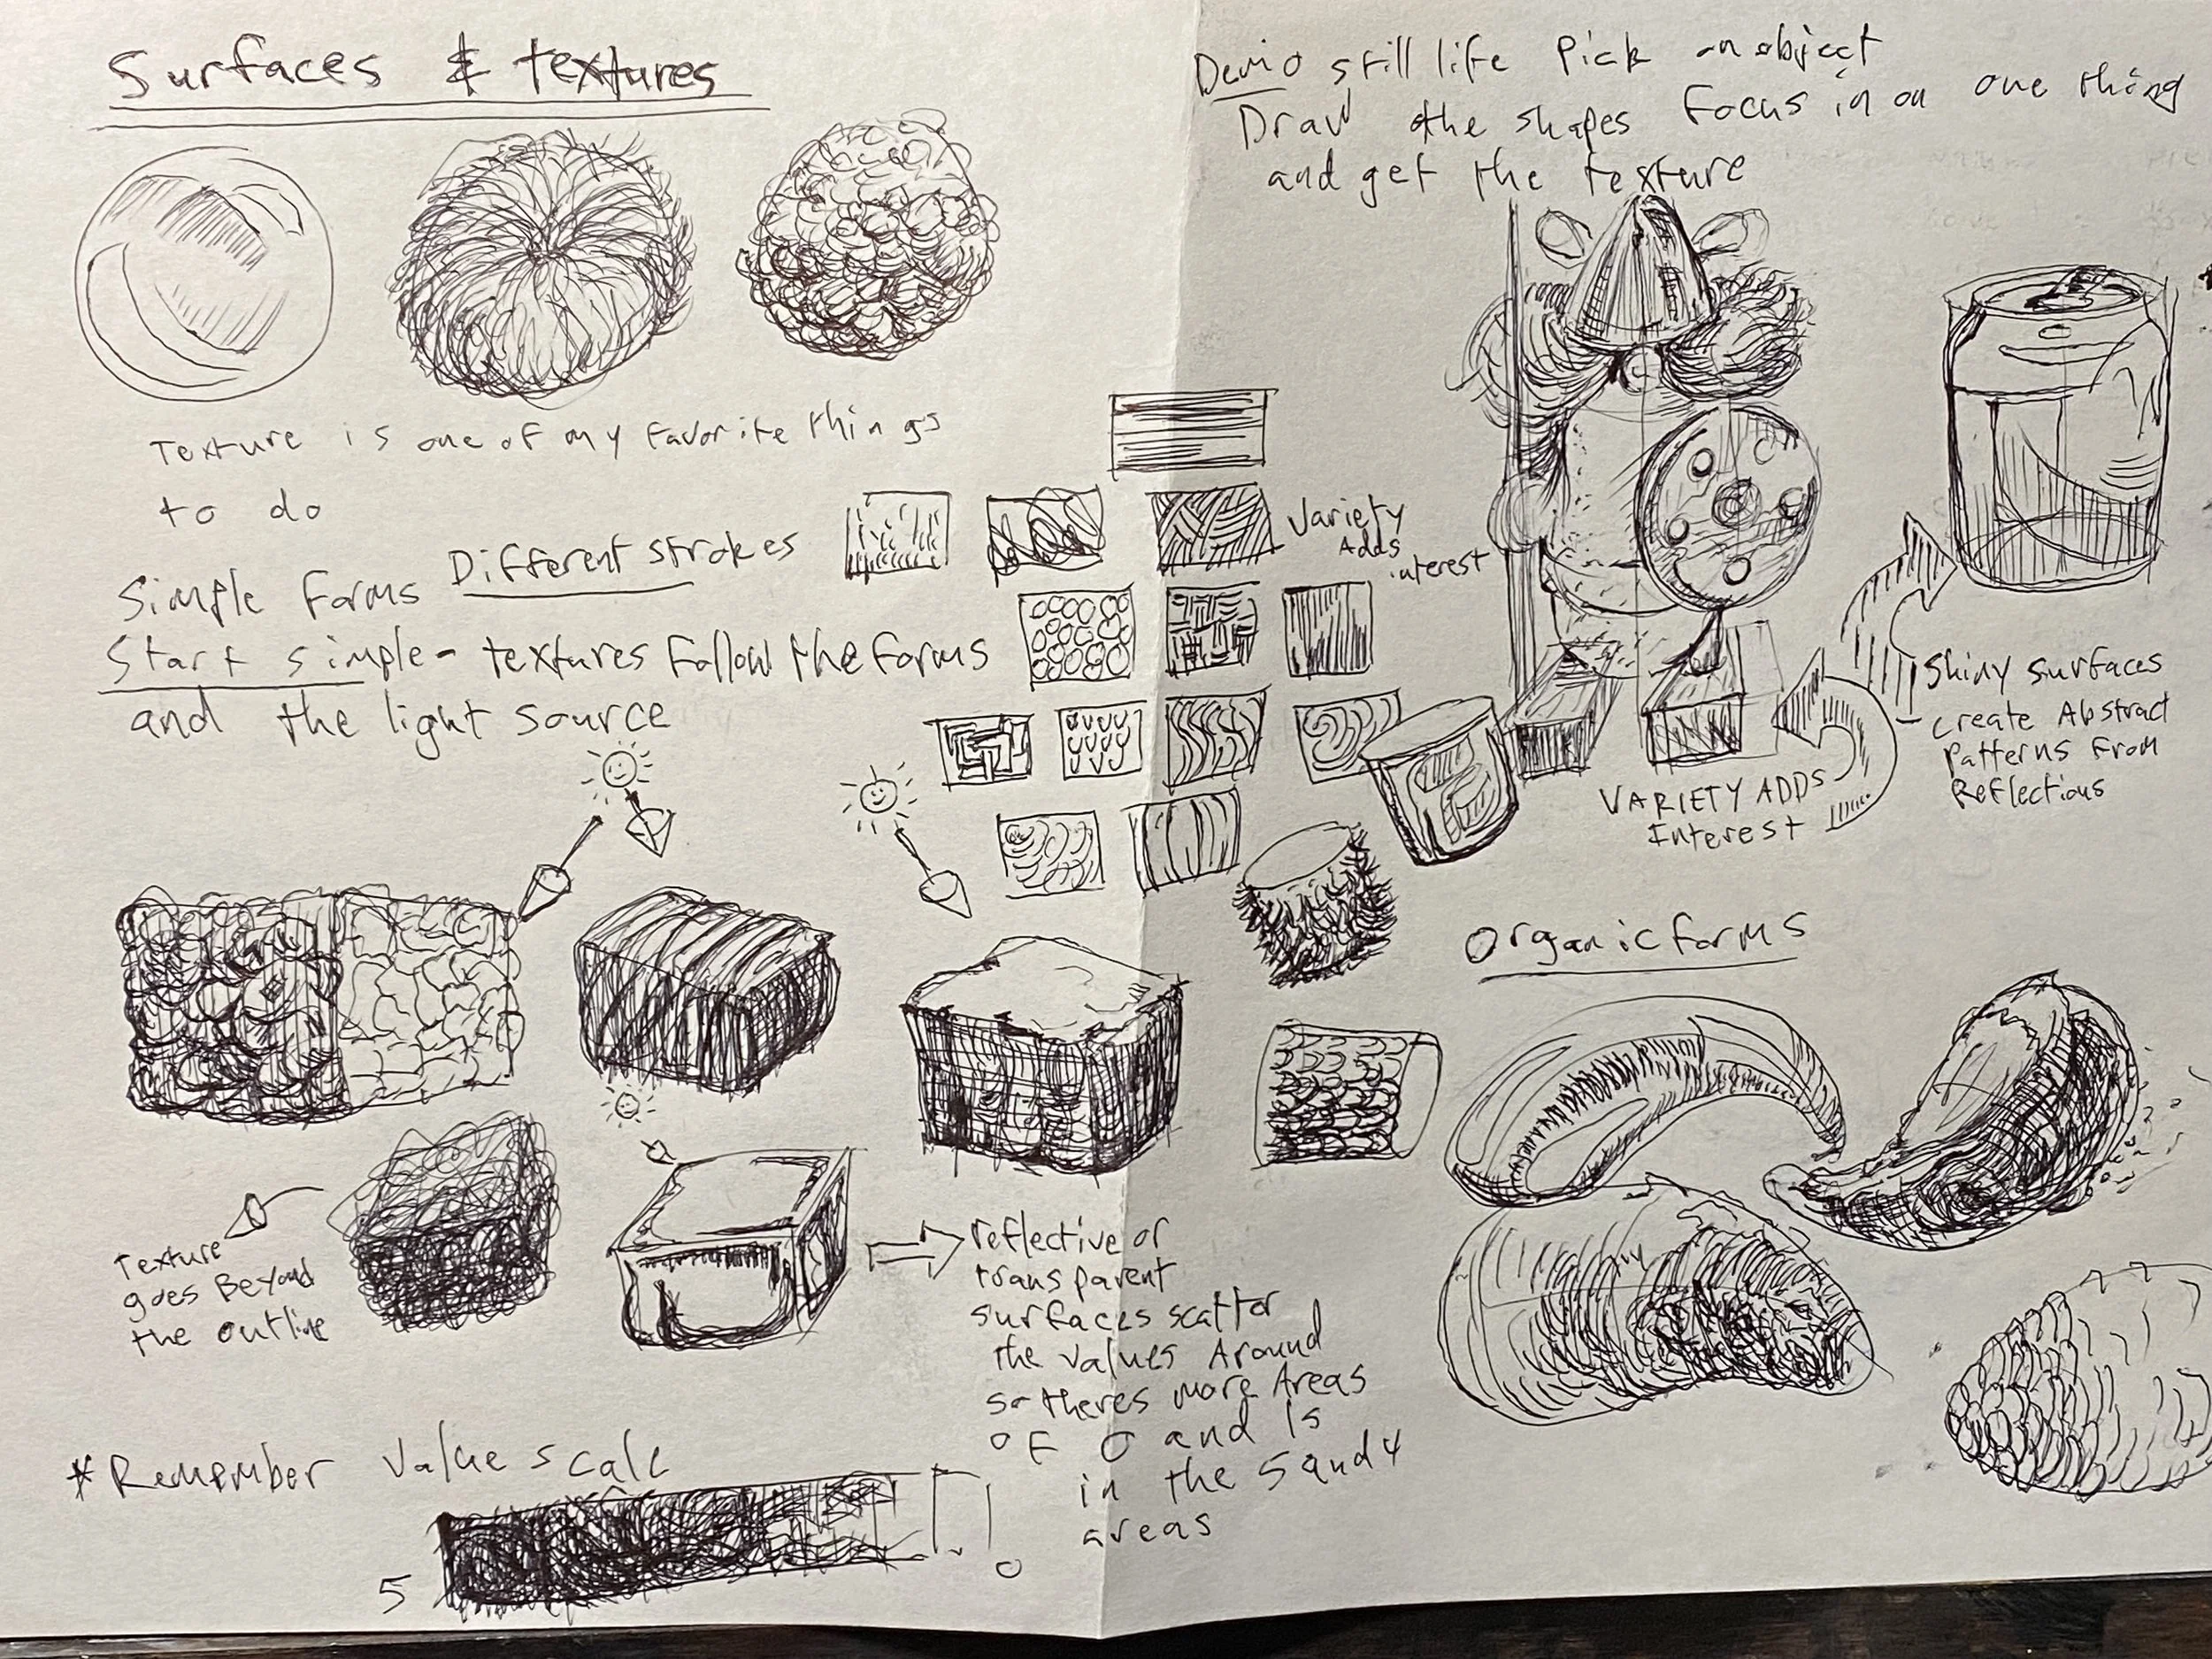 Surfaces & textures
Texture is one of my favorite things
to do
Different strokes
Simple forms
Start simple - textures follow the forms
and the light source
Variety
Adds
interest
Texture
goes Beyond
the outline
reflective or
transparent
surfaces scatter
the values Around
so theres more Areas
of 0 and 1s
in the 5 and 4
areas
*Remember value scale
5
0
Demo still life Pick an object
Draw the shapes Focus in on one thing
and get the texture
Shiny surfaces
create Abstract
Patterns From
Reflections
VARIETY ADDS
Interest
Organic forms